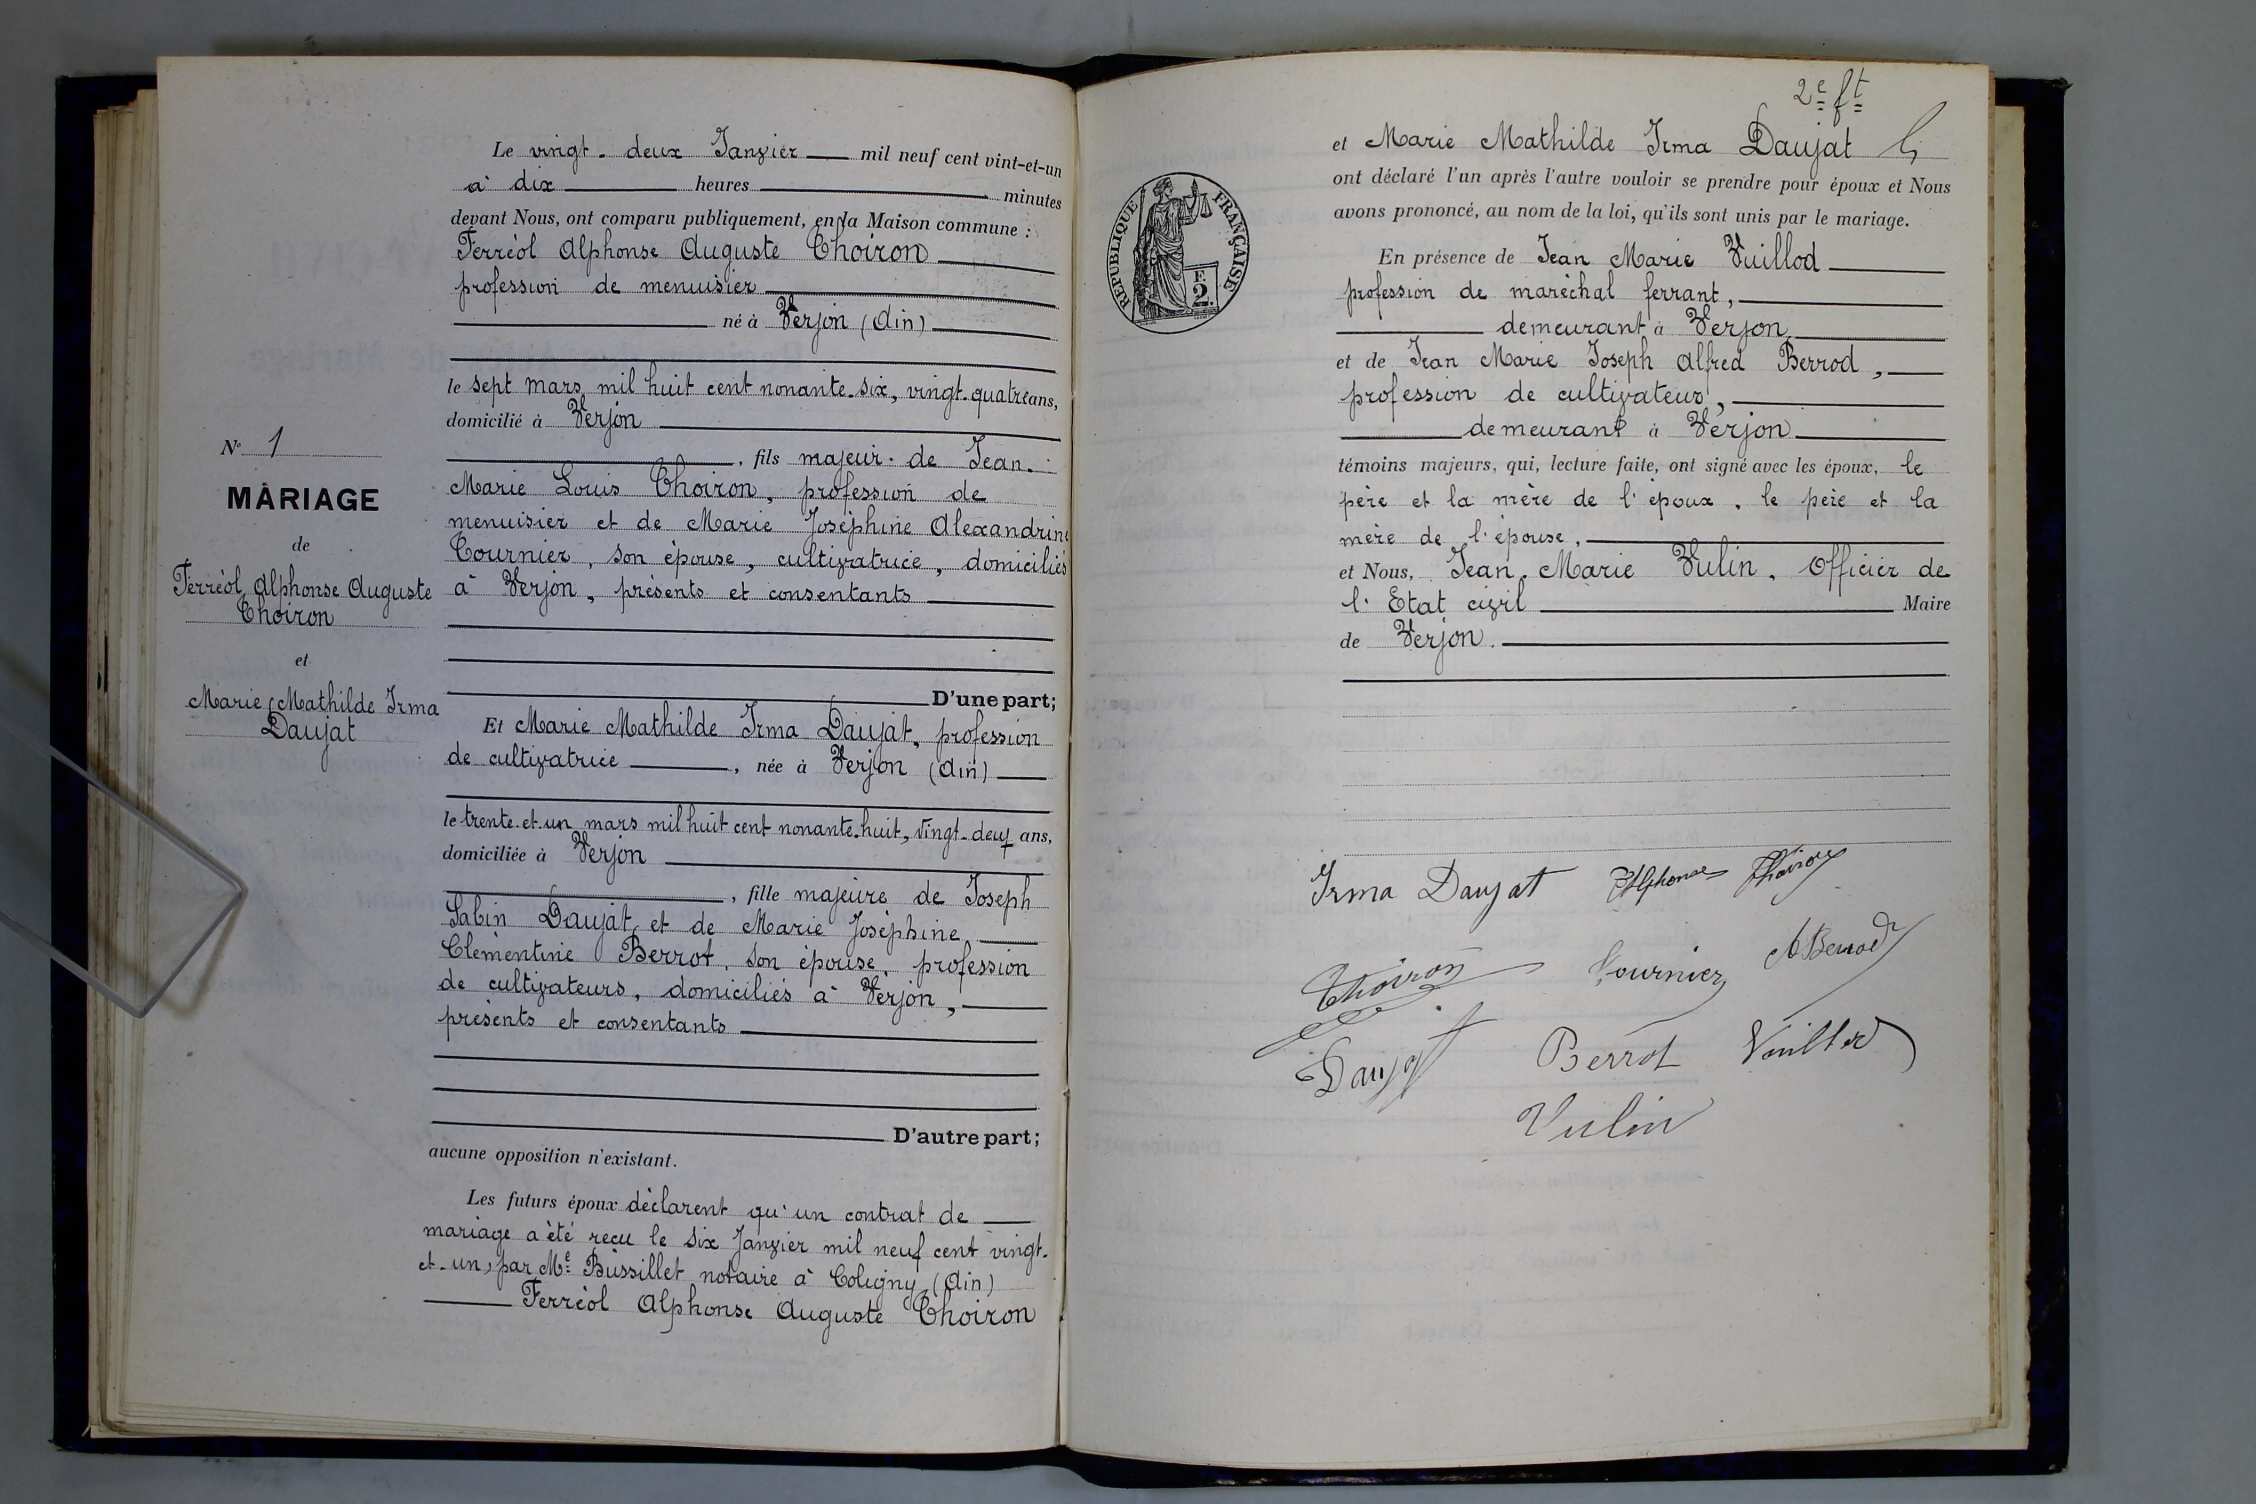 Le vingt-deux Janvier mil neuf cent vint-et-un
à dix heures minutes
devant Nous, ont comparu publiquement, en la Maison commune :
Ferréol Alphonse Auguste Thoiron
profession de menuisier
né à Verjon (Ain)
le sept mars mil huit cent nonante-six, vingt-quatre ans,
domicilié à Verjon
, fils majeur de Jean-
Marie Louis Thoiron, profession de
menuisier et de Marie Joséphine Alexandrine
Tournier, son épouse, cultivatrice, domiciliés
à Verjon, présents et consentants
D'une part;
Et Marie Mathilde Irma Daujat, profession
de cultivatrice, née à Verjon (Ain)
le trente-et-un mars mil huit cent nonante-huit, vingt-deux ans,
domiciliée à Verjon
, fille majeure de Joseph
Sabin Daujat et de Marie Joséphine
Clémentine Berrot, son épouse, profession
de cultivateurs, domiciliés à Verjon,
présents et consentants
D'autre part;
aucune opposition n'existant.
Les futurs époux déclarent qu'un contrat de
mariage a été reçu le six Janvier mil neuf cent vingt-
et-un, par Me Bussillet notaire à Coligny (Ain)
Ferréol Alphonse Auguste Thoiron
No 1
MARIAGE
de
Ferréol Alphonse Auguste
Thoiron
et
Marie Mathilde Irma
Daujat
2e ft
et Marie Mathilde Irma Daujat
ont déclaré l'un après l'autre vouloir se prendre pour époux et Nous
avons prononcé, au nom de la loi, qu'ils sont unis par le mariage.
En présence de Jean Marie Vuillod
profession de maréchal ferrant,
demeurant à Verjon
et de Jean Marie Joseph Alfred Berrod,
profession de cultivateur,
demeurant à Verjon
témoins majeurs, qui, lecture faite, ont signé avec les époux, le
père et la mère de l'époux, le père et la
mère de l'épouse,
et Nous, Jean-Marie Vulin, Officier de
l'Etat civil Maire
de Verjon.
RÉPUBLIQUE FRANÇAISE
F
2
Irma Daujat Alphonse Thoiron
Thoiron Tournier A Berrod
Daujat Berrot Vuillod
Vulin